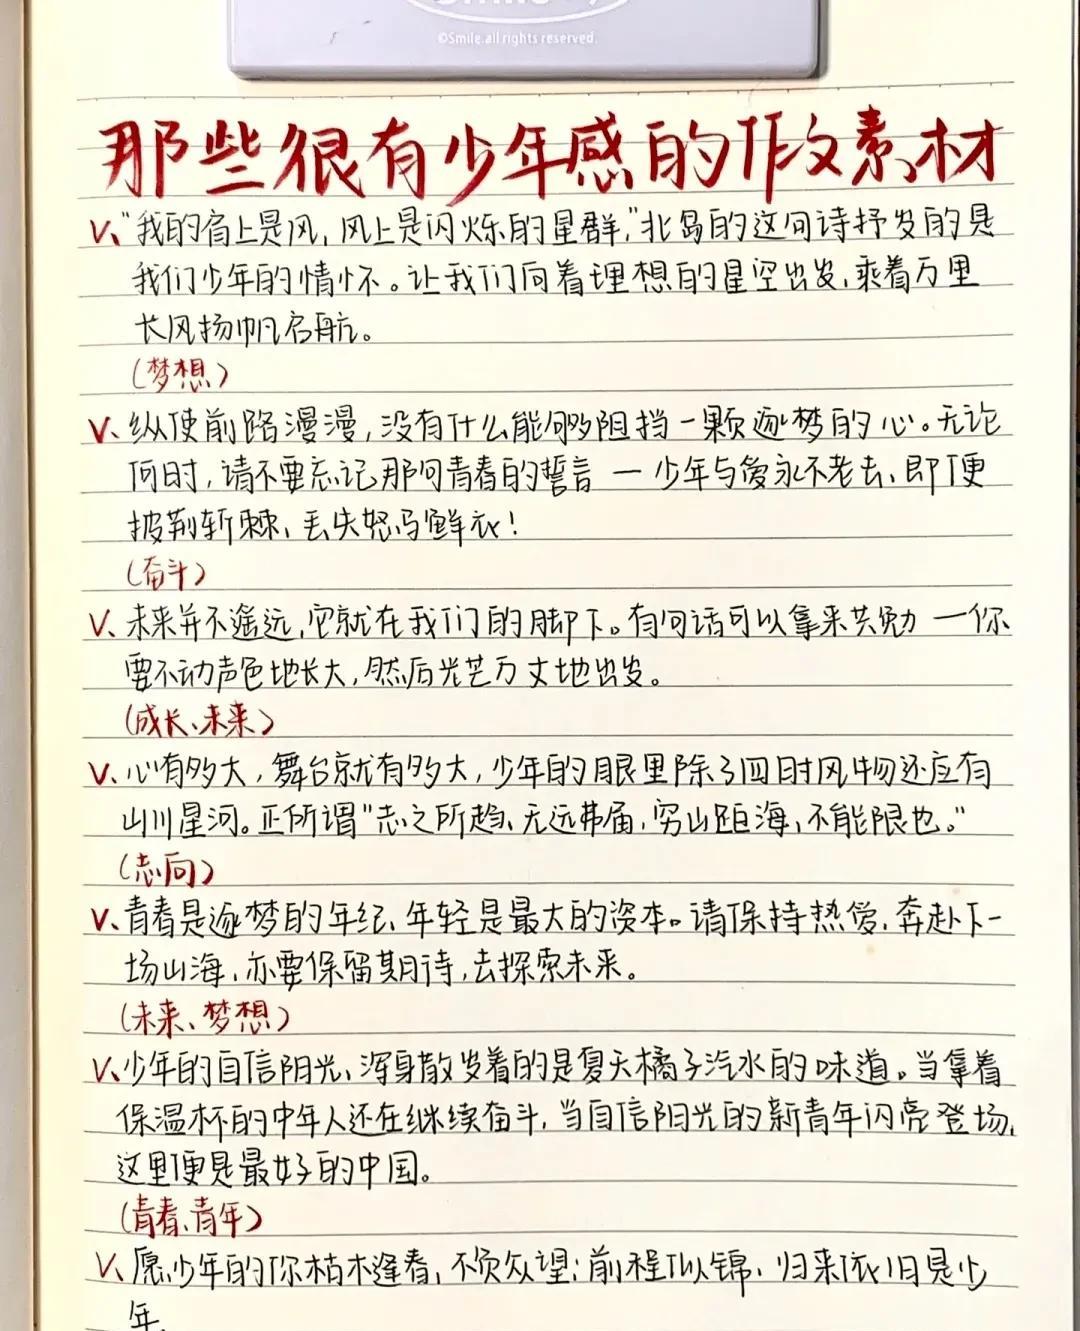 ©Smile.all rights reserved.
那些很有少年感的作文素材
V、"我的肩上是风,风上是闪烁的星群,"北岛的这句诗抒发的是
我们少年的情怀。让我们向着理想的星空出发,乘着万里
长风扬帆启航。
(梦想)
V、纵使前路漫漫,没有什么能够阻挡一颗逐梦的心。无论
何时,请不要忘记那句青春的誓言 — 少年与爱永不老去、即便
披荆斩棘、丢失怒马鲜衣!
(奋斗)
V、未来并不遥远,它就在我们的脚下。有句话可以拿来共勉 —你
要不动声色地长大,然后光芒万丈地出发。
(成长、未来)
V、心有多大,舞台就有多大,少年的眼里除了四时风物还应有
山川星河。正所谓"志之所趋、无远弗届,穷山距海,不能限也。"
(志向)
V、青春是逐梦的年纪、年轻是最大的资本。请保持热爱、奔赴下一
场山海,亦要保留期待,去探索未来。
(未来、梦想)
V、少年的自信阳光、浑身散发着的是夏天橘子汽水的味道。当拿着
保温杯的中年人还在继续奋斗,当自信阳光的新青年闪亮登场,
这里便是最好的中国。
(青春、青年)
V、愿少年的你枯木逢春,不负众望;前程似锦、归来依旧是少
年、